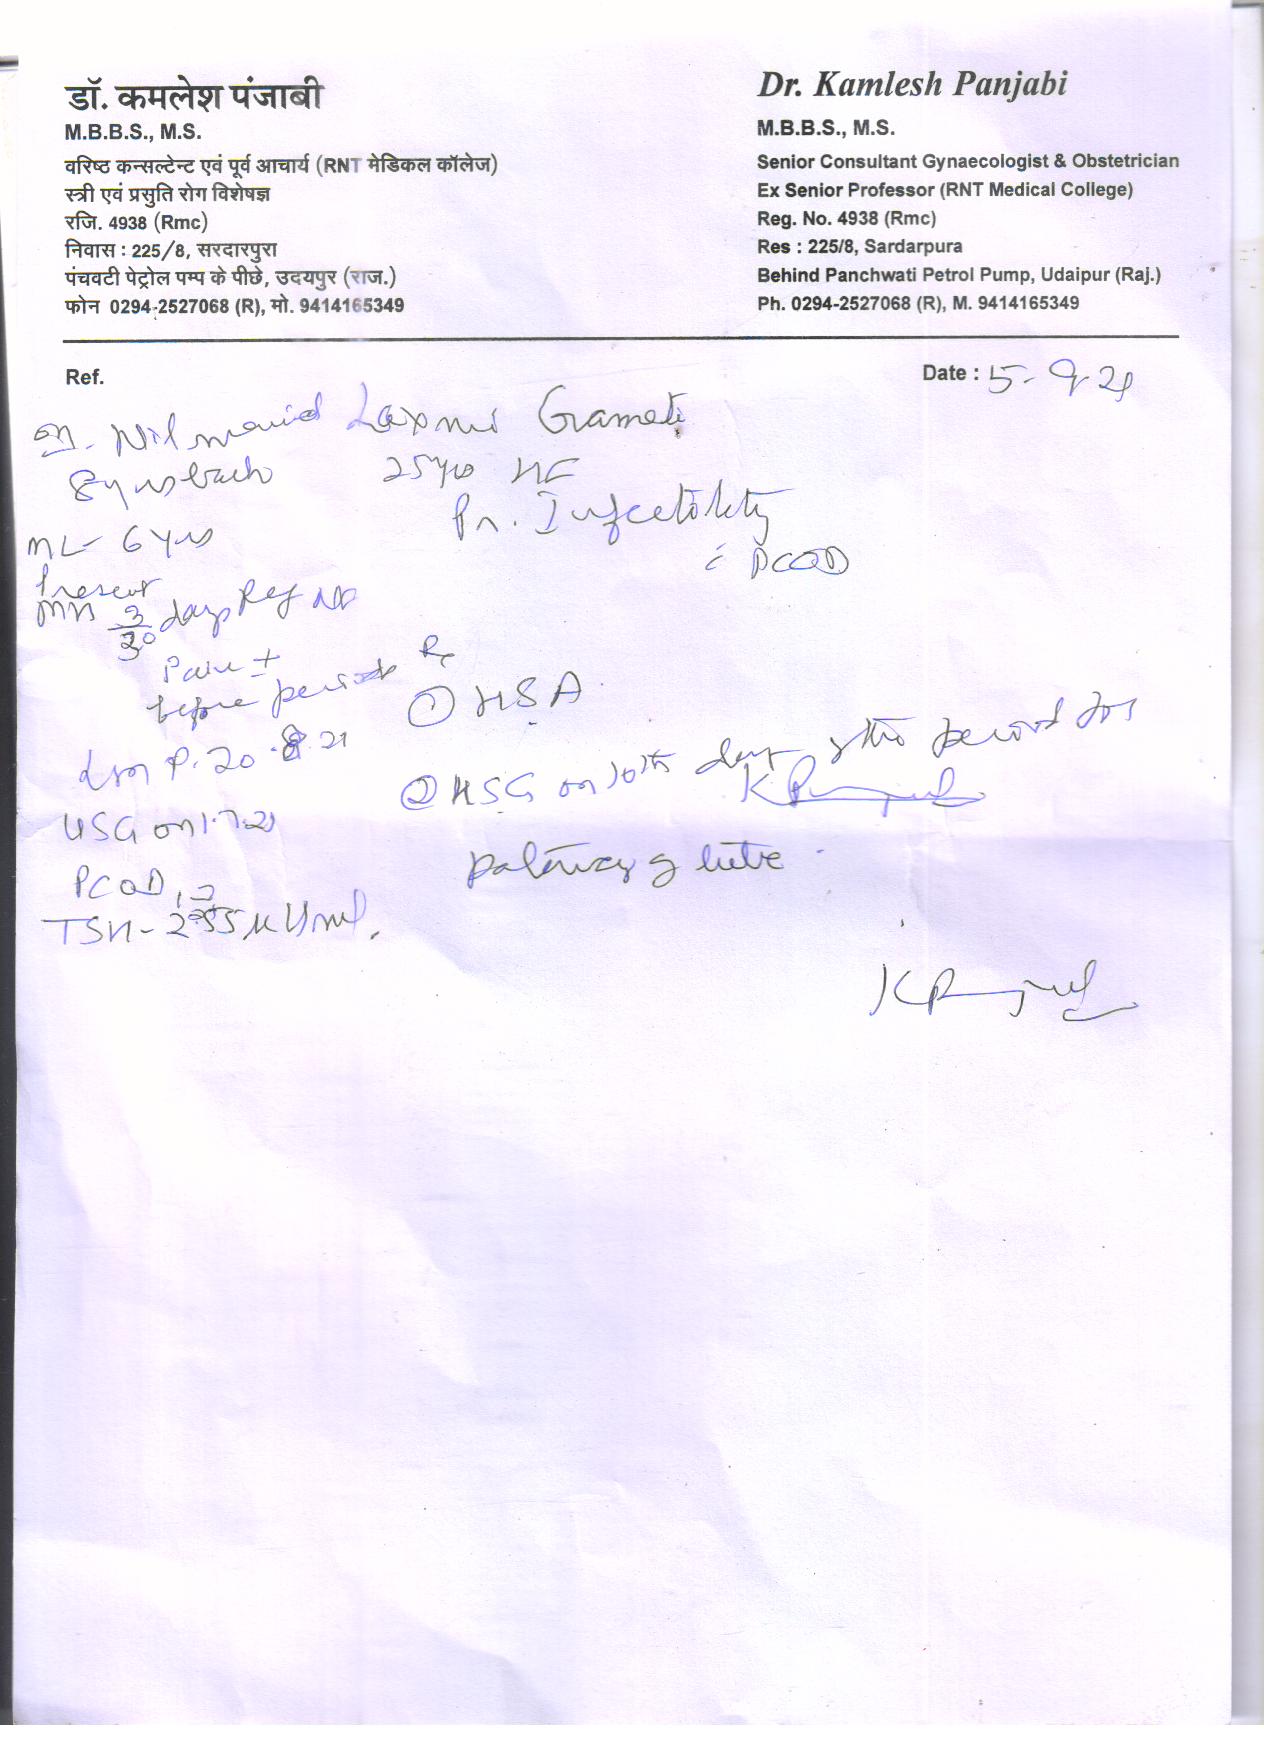 डॉ. कमलेश पंजाबी
M.B.B.S., M.S.
वरिष्ठ कन्सल्टेन्ट एवं पूर्व आचार्य (RNT मेडिकल कॉलेज)
स्त्री एवं प्रसुति रोग विशेषज्ञ
रजि. 4938 (Rmc)
निवास : 225/8, सरदारपुरा
पंचवटी पेट्रोल पम्प के पीछे, उदयपुर (राज.)
फोन 0294-2527068 (R), मो. 9414165349
Dr. Kamlesh Panjabi
M.B.B.S., M.S.
Senior Consultant Gynaecologist & Obstetrician
Ex Senior Professor (RNT Medical College)
Reg. No. 4938 (Rmc)
Res : 225/8, Sardarpura
Behind Panchwati Petrol Pump, Udaipur (Raj.)
Ph. 0294-2527068 (R), M. 9414165349
Ref.
Date : 5-9-21
Laxmi Gameti
25 yrs
Pr. Infertility
c̄ PCOD
Nil married
8 yrs back
ML- 6 yrs
Present
MH 3/30 days Reg
Pain ±
before periods
LMP. 20.8.21
USG on 1.7.21
PCOD
TSH-
Rx
① HSA
② HSG on 10th day of the period for
patency of tube